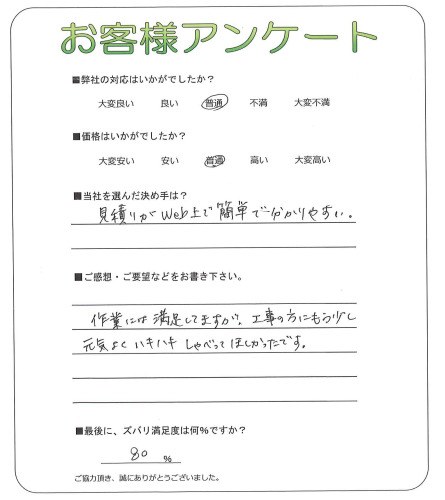 お客様アンケート
■弊社の対応はいかがでしたか？
大変良い 良い 普通 不満 大変不満
■価格はいかがでしたか？
大変安い 安い 普通 高い 大変高い
■当社を選んだ決め手は？
見積りがWeb上で簡単で分かりやすい。
■ご感想・ご要望などをお書き下さい。
作業には満足してますが、工事の方にもう少し
元気よくハキハキしゃべってほしかったです。
■最後に、ズバリ満足度は何％ですか？
80 ％
ご協力頂き、誠にありがとうございました。